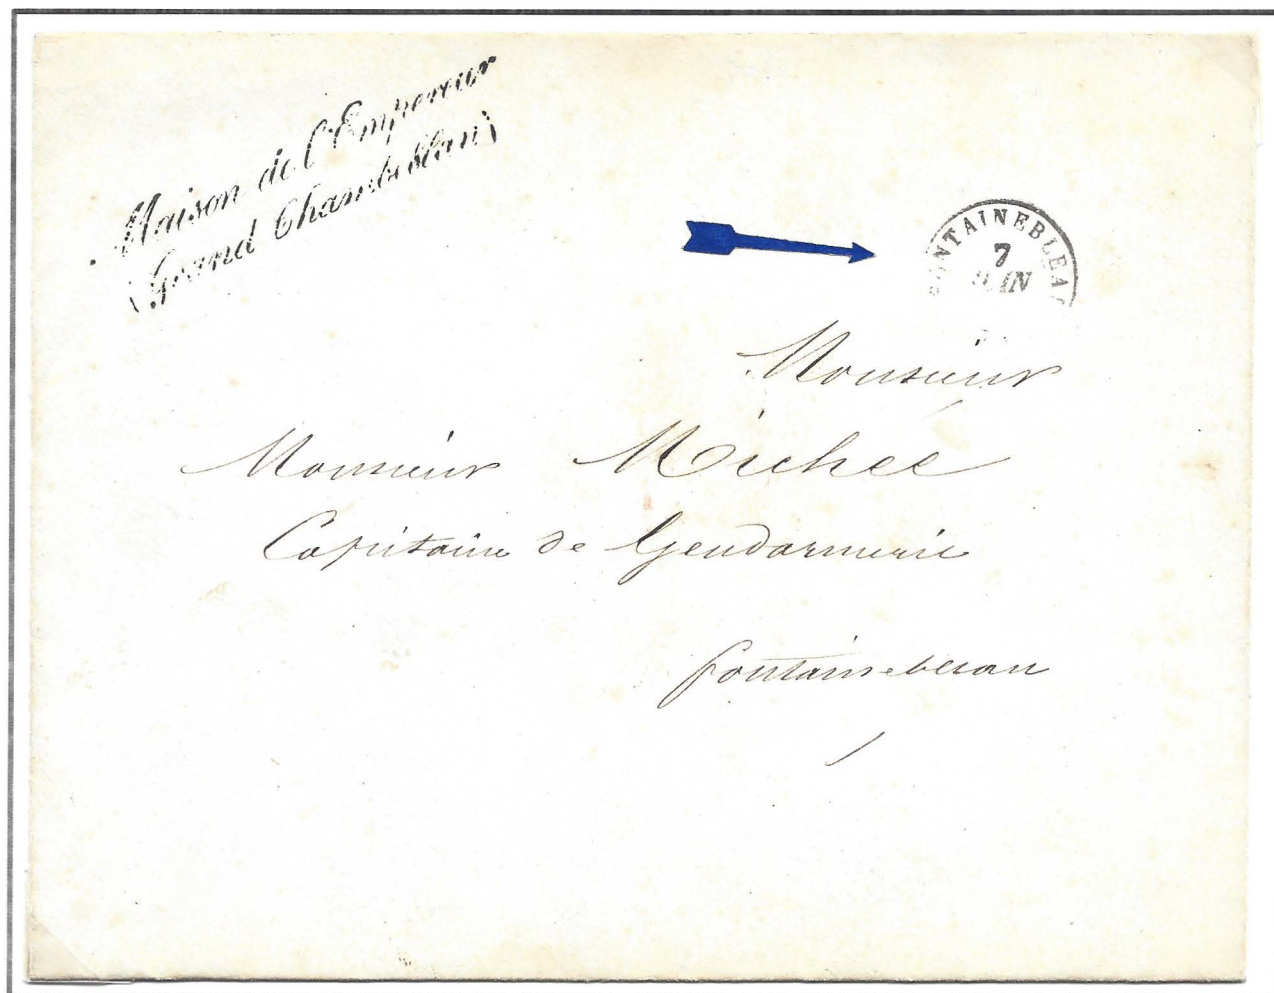 Maison de l'Empereur
(Grand Chambellan)
FONTAINEBLEAU
7
JUIN
Monsieur
Monsieur Michel
Capitaine de Gendarmerie
fontainebleau